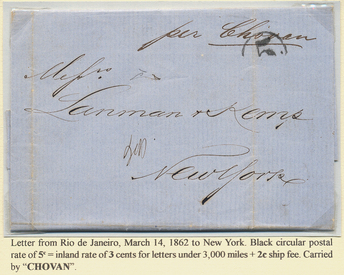 per Chovan
5
Messrs
Lanman & Kemp
New York
Letter from Rio de Janeiro, March 14, 1862 to New York. Black circular postal
rate of 5c = inland rate of 3 cents for letters under 3,000 miles + 2c ship fee. Carried
by “CHOVAN”.